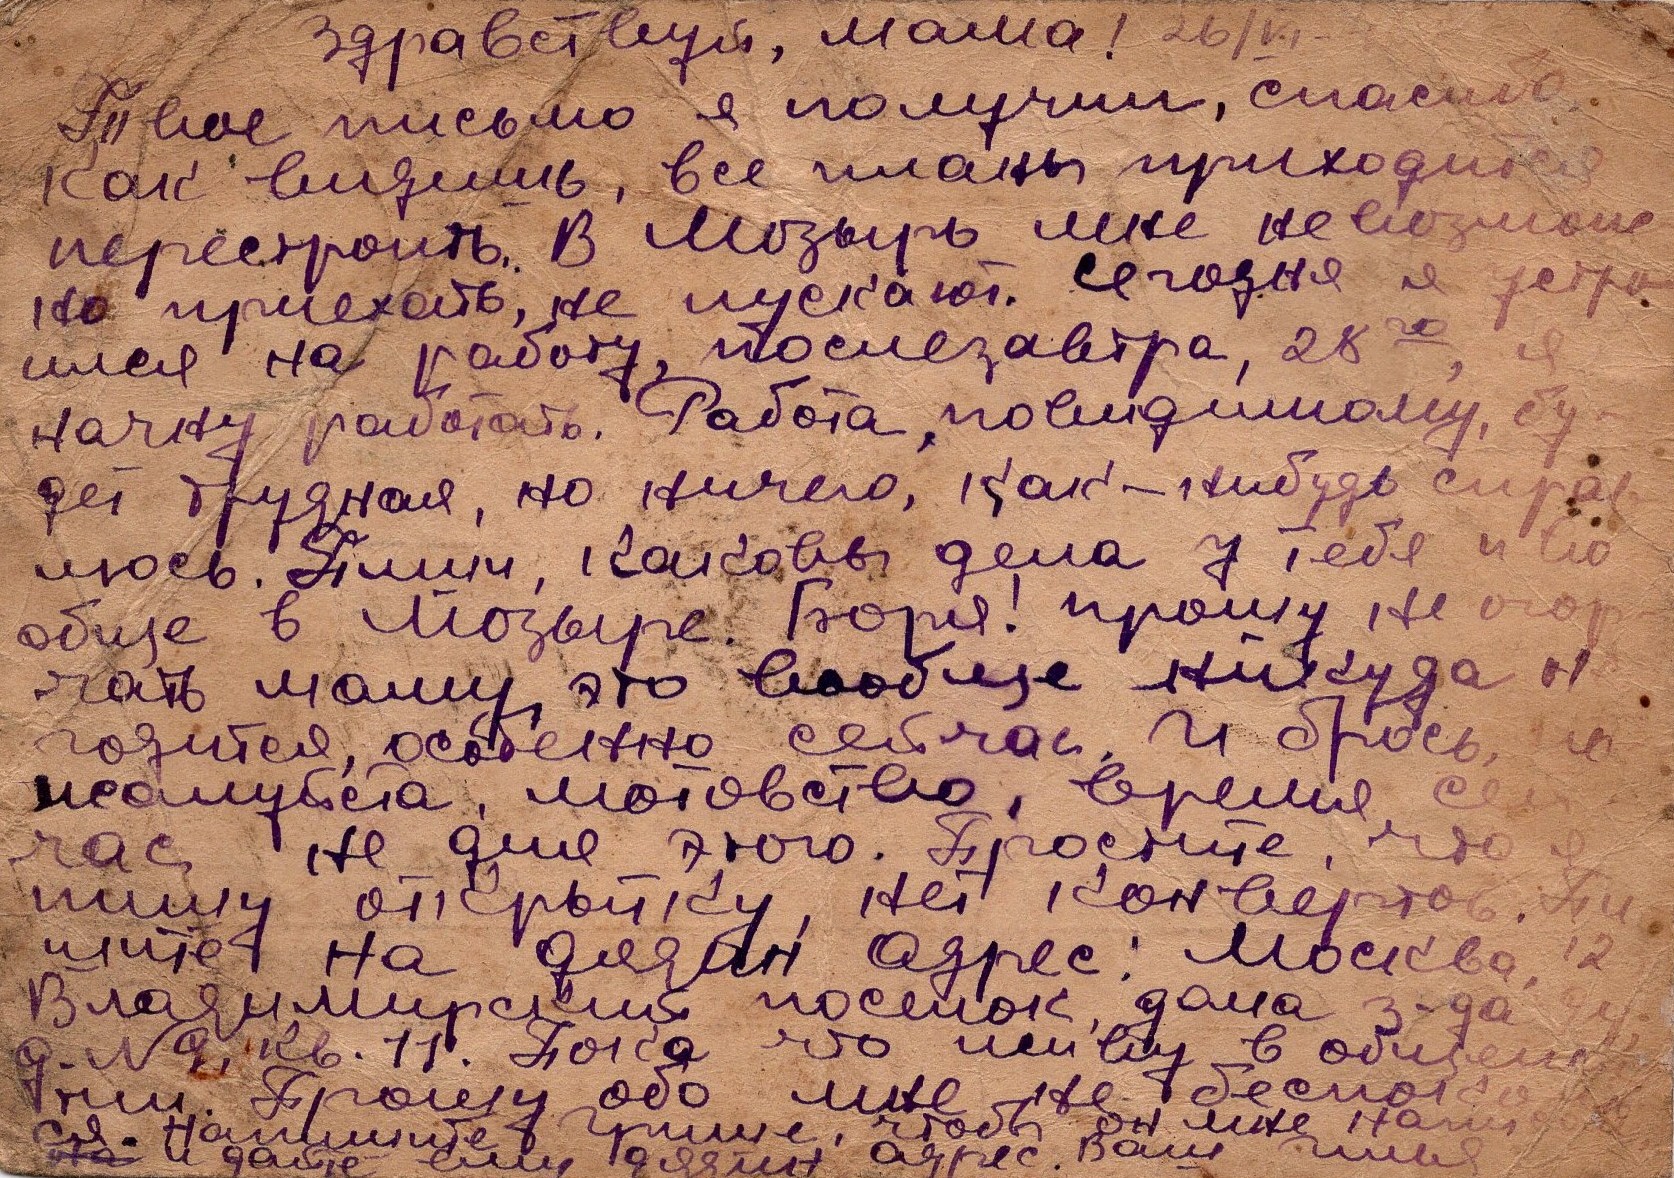 Здравствуй, мама! 26/VI-
Твое письмо я получил, спасибо.
Как видишь, все планы приходится
перестроить. В Мозырь мне невозмож
но приехать, не пускают. Сегодня я устро
ился на работу, послезавтра, 28го, я
начну работать. Работа, повидимому, бу-
дет трудная, но ничего, как-нибудь справ
люсь. Пиши, каковы дела у тебя и во
обще в Мозыре. Боря! прошу не огор-
чать маму, это вообще никуда н
годится, особенно сейчас. И брось, по
жалуйста, мотовство, время сей
час не для этого. Простите, что я
пишу открытку, нет конвертов. Пи
шите на дядин адрес: Москва, 12
Владимирский поселок, дома з-да
д. № 9, кв. 11. Пока что живу в общежи
тии. Прошу обо мне не беспоко
ся. Напишите Грише, чтобы он мне напи
и дайте ему дядин адрес. Ваш Илья